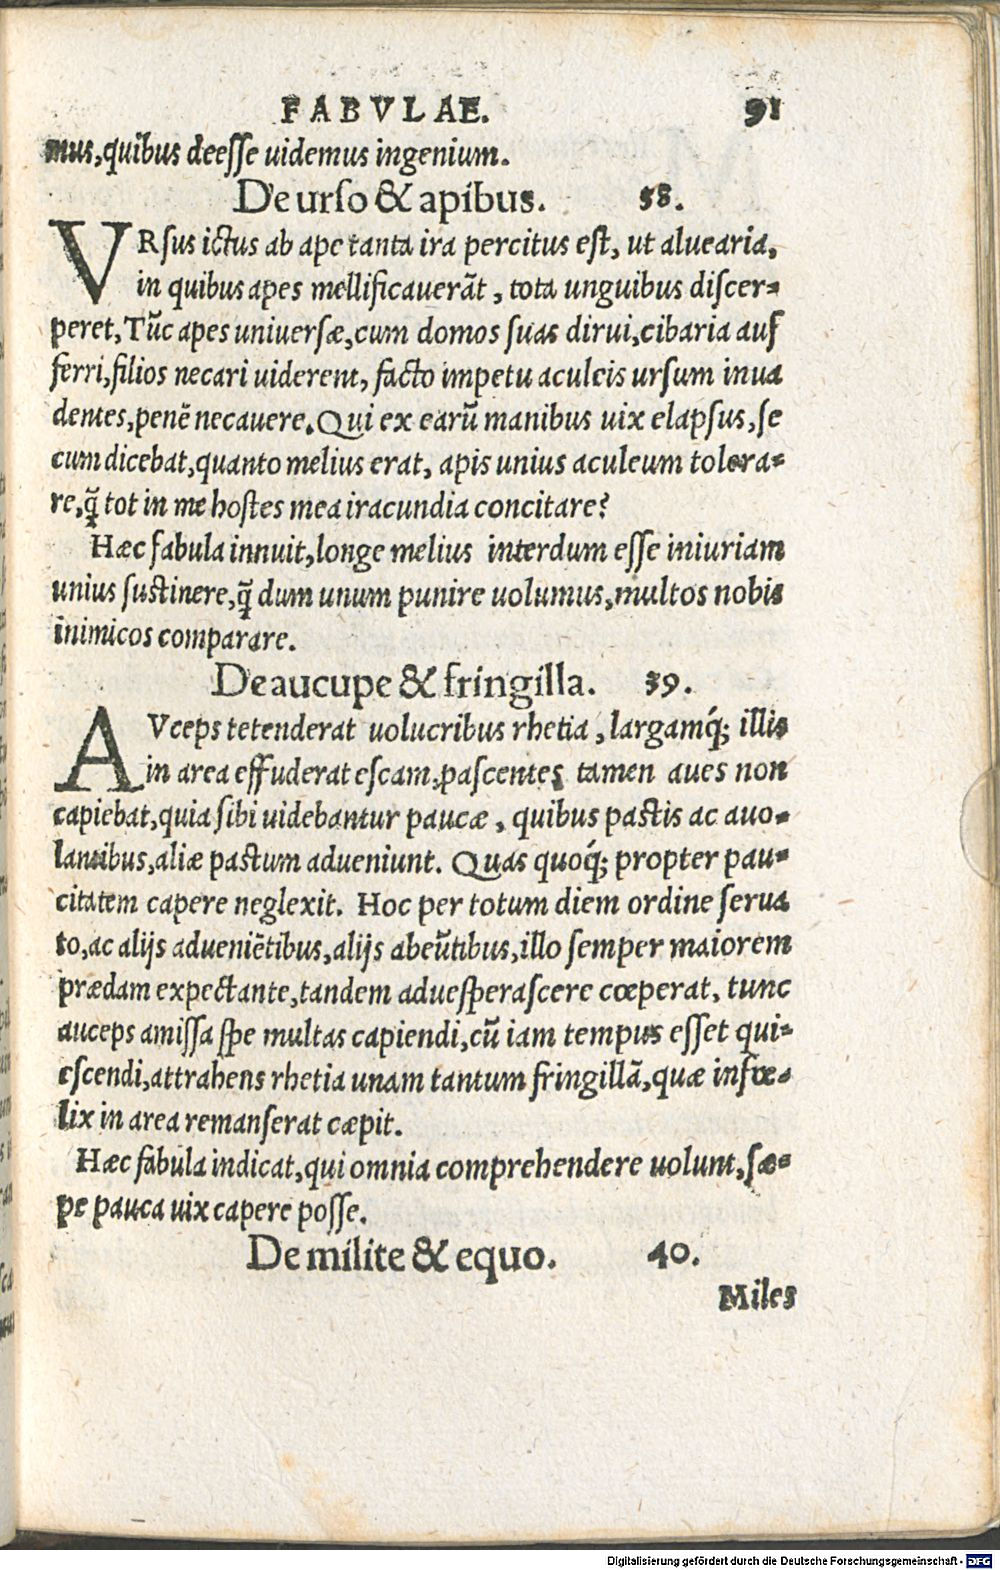 FABVLAE. 91
mus,quibus deesse uidemus ingenium.
De urso & apibus. 38.
VRsus ictus ab ape tanta ira percitus est, ut aluearia,
in quibus apes mellificauerãt, tota unguibus discer-
peret, Tũc apes uniuersæ, cum domos suas dirui, cibaria auf
ferri, filios necari uiderent, facto impetu aculeis ursum inua
dentes, penè necauere. Qui ex earũ manibus uix elapsus, se
cum dicebat, quanto melius erat, apis unius aculeum tolera-
re, q̃ tot in me hostes mea iracundia concitare?
Hæc fabula innuit, longe melius interdum esse iniuriam
unius sustinere, q̃ dum unum punire uolumus, multos nobis
inimicos comparare.
De aucupe & fringilla. 39.
AVceps tetenderat uolucribus rhetia, largamq́; illis
in area effuderat escam, pascentes tamen aues non
capiebat, quia sibi uidebantur paucæ, quibus pastis ac auo-
lantibus, aliæ pastum adueniunt. Quas quoq́; propter pau-
citatem capere neglexit. Hoc per totum diem ordine serua
to, ac alijs adueniẽtibus, alijs abeũtibus, illo semper maiorem
prædam expectante, tandem aduesperascere cœperat, tunc
auceps amissa spe multas capiendi, cũ iam tempus esset qui-
escendi, attrahens rhetia unam tantum fringillã, quæ infœ-
lix in area remanserat cæpit.
Hæc fabula indicat, qui omnia comprehendere uolunt, sæ-
pe pauca uix capere posse.
De milite & equo. 40.
Miles
Digitalisierung gefördert durch die Deutsche Forschungsgemeinschaft - DFG